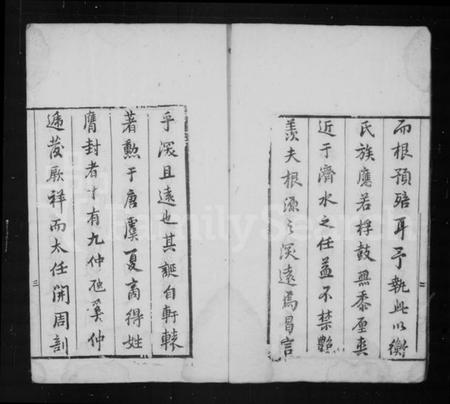 而根預碚耳予執此以衡
氏族應若桴鼓無黍厘爽
近于濟水之任益不禁艷
羨夫根源之深遠為昌言
乎深且遠也其誕自軒轅
著勳于唐虞夏商得姓
膺封者十有九仲虺奚仲
遞發厥祥而太任開周剖
三
FamilySearch